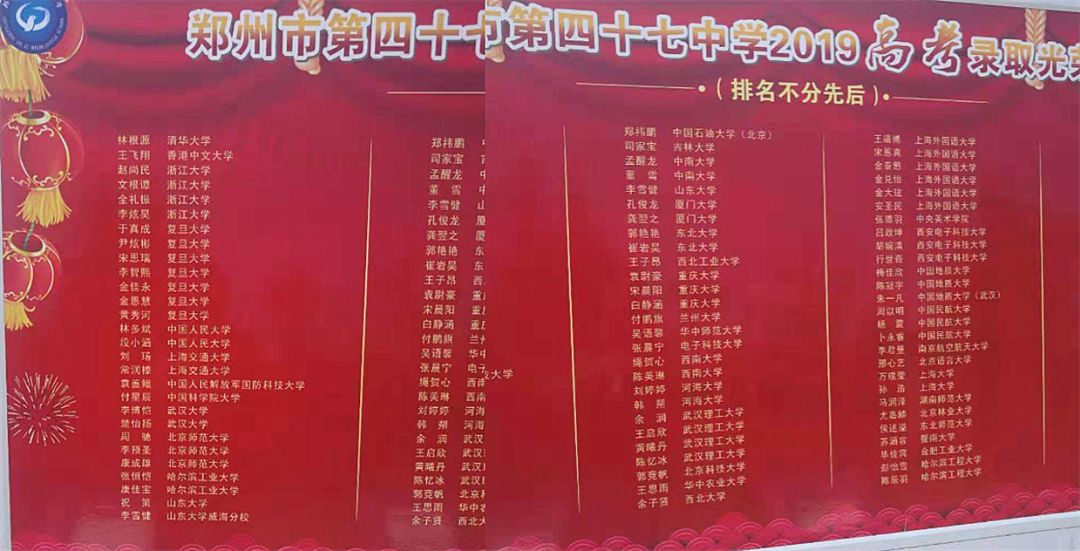 郑州市第四十七
市第四十七中学2019高考录取光荣
（排名不分先后）
林根源 清华大学
王飞翔 香港中文大学
赵尚民 浙江大学
文根谭 浙江大学
全礼振 浙江大学
李炫昊 浙江大学
于真成 复旦大学
尹炫彬 复旦大学
宋恩瑞 复旦大学
李智熙 复旦大学
金佳永 复旦大学
金恩慧 复旦大学
黄秀河 复旦大学
林多斌 中国人民大学
段小涵 中国人民大学
刘 玚 上海交通大学
常润樟 上海交通大学
袁善鲲 中国人民解放军国防科技大学
付星辰 中国科学院大学
李博恺 武汉大学
楚怡扬 武汉大学
周 驰 北京师范大学
李殷圣 北京师范大学
康成雄 北京师范大学
张恒恺 哈尔滨工业大学
康佳宝 哈尔滨工业大学
祝 策 山东大学
李雪健 山东大学威海分校
郑祎鹏 中
司家宝 吉
孟醒龙 中
董 雪 中
李雪健 山
孔俊龙 厦
龚翌之 厦
郭艳艳 东
崔岩昊 东
王子昂 西
袁尉豪 重
宋晨阳 重
白静涵 重
付鹏旗 兰
吴语馨 华中
张晨宁 电子
绳贺心 西南
陈美琳 西南
刘婷婷 河海
韩 朔 河海
余 润 武汉
王启欣 武汉
黄曦丹 武汉
陈忆冰 武汉
郭竞帆 北京
王思雨 华中
余子贤 西北
技大学
郑祎鹏 中国石油大学（北京）
司家宝 吉林大学
孟醒龙 中南大学
董 雪 中南大学
李雪健 山东大学
孔俊龙 厦门大学
龚翌之 厦门大学
郭艳艳 东北大学
崔岩昊 东北大学
王子昂 西北工业大学
袁尉豪 重庆大学
宋晨阳 重庆大学
白静涵 重庆大学
付鹏旗 兰州大学
吴语馨 华中师范大学
张晨宁 电子科技大学
绳贺心 西南大学
陈美琳 西南大学
刘婷婷 河海大学
韩 朔 河海大学
余 润 武汉理工大学
王启欣 武汉理工大学
黄曦丹 武汉理工大学
陈忆冰 武汉理工大学
郭竞帆 北京科技大学
王思雨 华中农业大学
余子贤 西北大学
王璐博 上海外国语大学
宋恩真 上海外国语大学
金泰慜 上海外国语大学
金兑怡 上海外国语大学
金大玹 上海外国语大学
安圣民 上海外国语大学
张薇羽 中央美术学院
吕政坤 西安电子科技大学
胡婉清 西安电子科技大学
行世奇 西安电子科技大学
梅佳欣 中国地质大学
陈冠宇 中国地质大学
朱一凡 中国地质大学（武汉）
周以明 中国民航大学
杨 震 中国民航大学
卜永睿 中国民航大学
李君曼 南京航空航天大学
邢心艺 北京语言大学
万瑛莹 上海大学
孙 浩 上海大学
马润泽 湖南师范大学
尤嘉麟 北京林业大学
侯述溢 东北师范大学
苏涵睿 暨南大学
毕佳宾 合肥工业大学
彭怡雪 哈尔滨工程大学
陈辰羽 哈尔滨工程大学